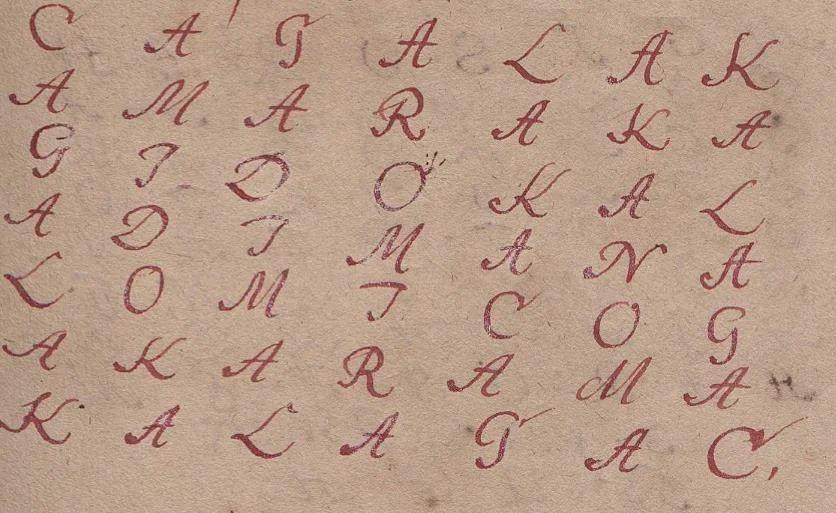 C A G A L A K
A M A R A K A
G I D O K A L
A D I M A N A
L O M I C O G
A K A R A M A
K A L A G A C,